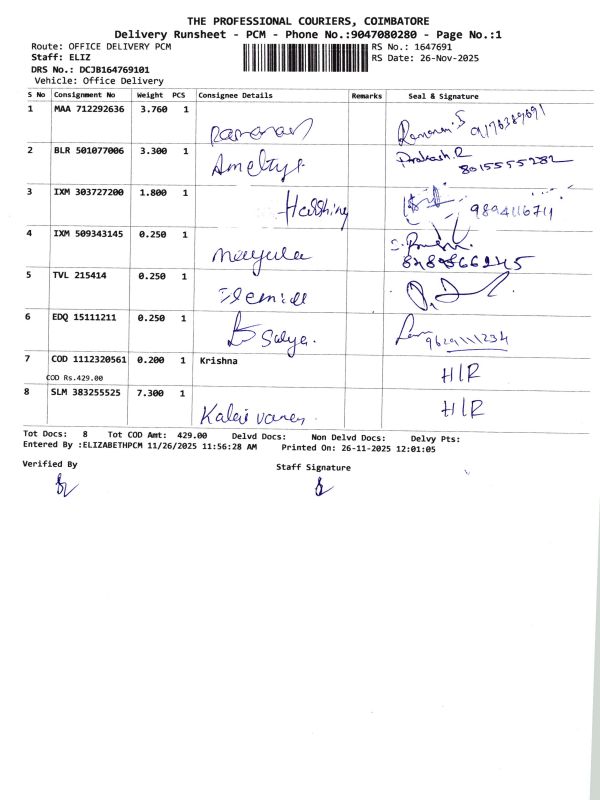 THE PROFESSIONAL COURIERS, COIMBATORE
Delivery Runsheet - PCM - Phone No.:9047080280 - Page No.:1
Route: OFFICE DELIVERY PCM RS No.: 1647691
Staff: ELIZ RS Date: 26-Nov-2025
DRS No.: DCJB164769101
Vehicle: Office Delivery
S No Consignment No Weight PCS Consignee Details Remarks Seal & Signature
1 MAA 712292636 3.760 1
2 BLR 501077006 3.300 1 Prakash.R
8015555282
3 IXM 303727200 1.800 1 9894116711
4 IXM 509343145 0.250 1 mayula
5 TVL 215414 0.250 1
6 EDQ 15111211 0.250 1 Satya. 9629111234
7 COD 1112320561 0.200 1 Krishna H/R
COD Rs.429.00
8 SLM 383255525 7.300 1 H/R
Tot Docs: 8 Tot COD Amt: 429.00 Delvd Docs: Non Delvd Docs: Delvy Pts:
Entered By :ELIZABETHPCM 11/26/2025 11:56:28 AM Printed On: 26-11-2025 12:01:05
Verified By Staff Signature